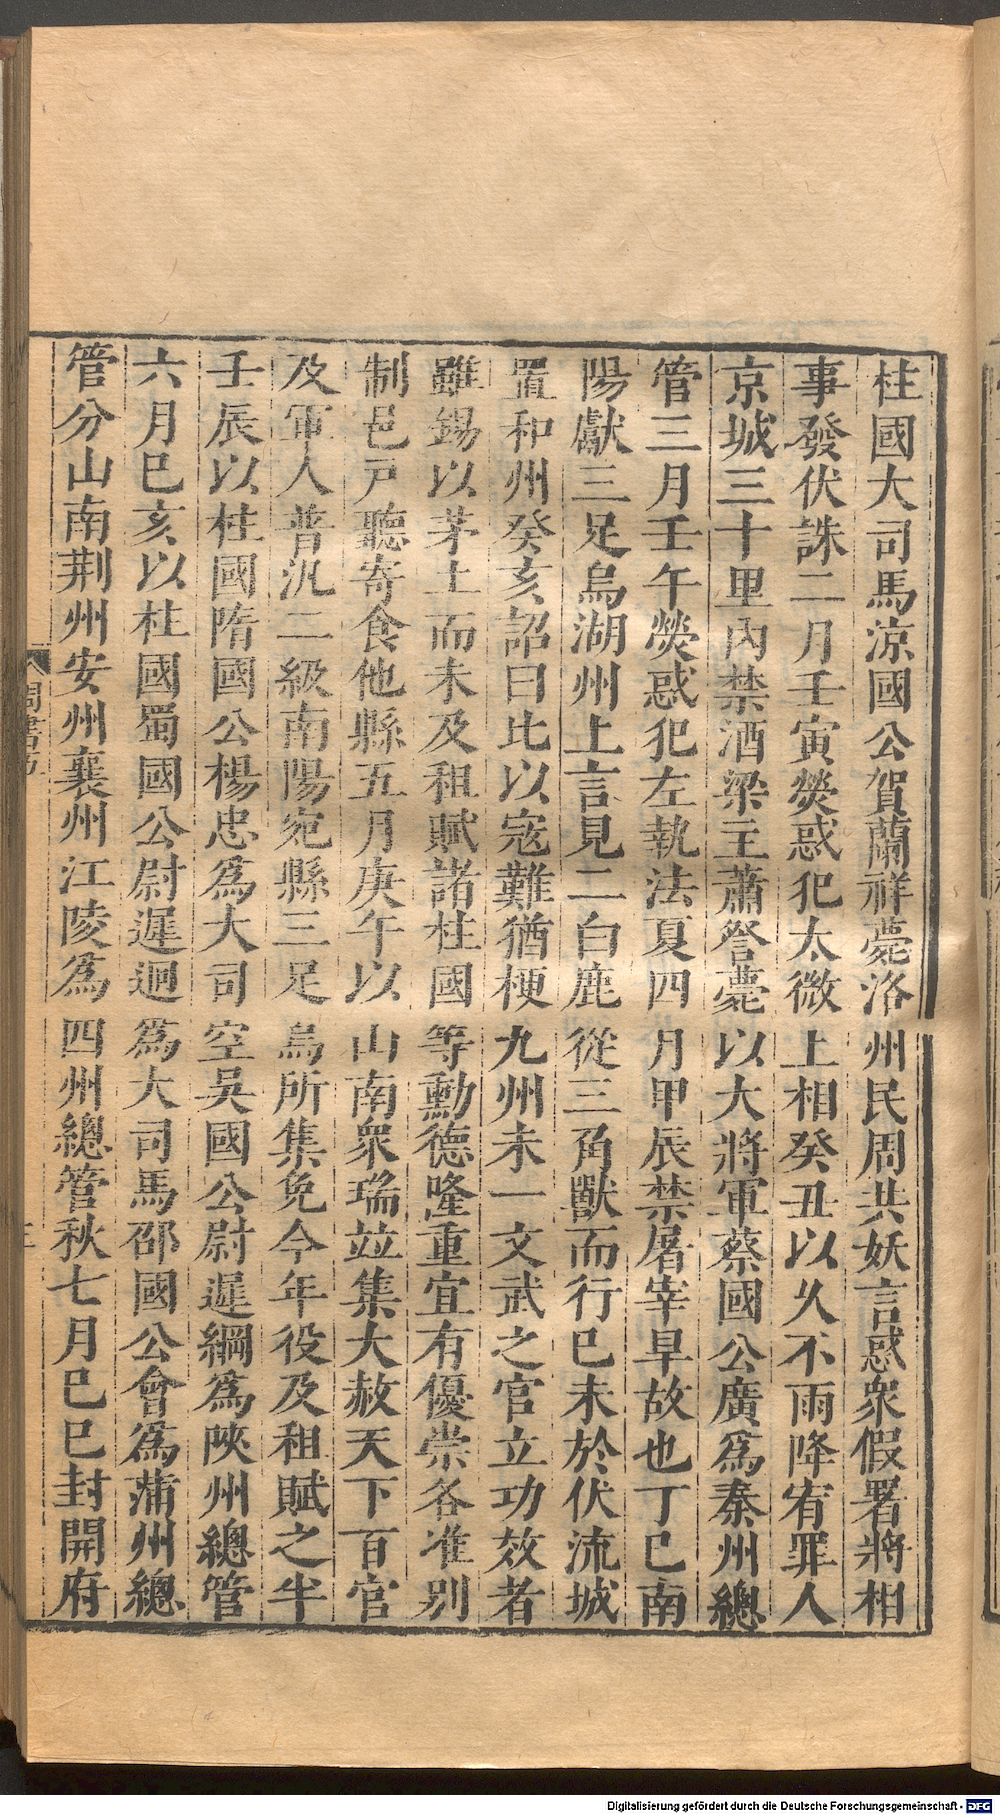 柱國大司馬涼國公賀蘭祥薨洛州民周共妖言惑衆假署將相
事發伏誅二月壬寅熒惑犯太微上相癸丑以久不雨降宥罪人
京城三十里內禁酒梁主蕭詧薨以大將軍蔡國公廣爲秦州總
管三月壬午熒惑犯左執法夏四月甲辰禁屠宰旱故也丁巳南
陽獻三足烏湖州上言見二白鹿從三角獸而行已未於伏流城
置和州癸亥詔曰比以寇難猶梗九州未一文武之官立功效者
雖錫以茅土而未及租賦諸柱國等勳德隆重宜有優崇各准別
制邑戸聽寄食他縣五月庚午以山南衆瑞竝集大赦天下百官
及軍人普汎二級南陽宛縣三足烏所集免今年役及租賦之半
壬辰以柱國隋國公楊忠爲大司空吳國公尉遲綱爲陝州總管
六月已亥以柱國蜀國公尉遲迥爲大司馬邵國公會爲蒲州總
管分山南荆州安州襄州江陵爲四州總管秋七月已巳封開府
周書
Digitalisierung gefördert durch die Deutsche Forschungsgemeinschaft - DFG